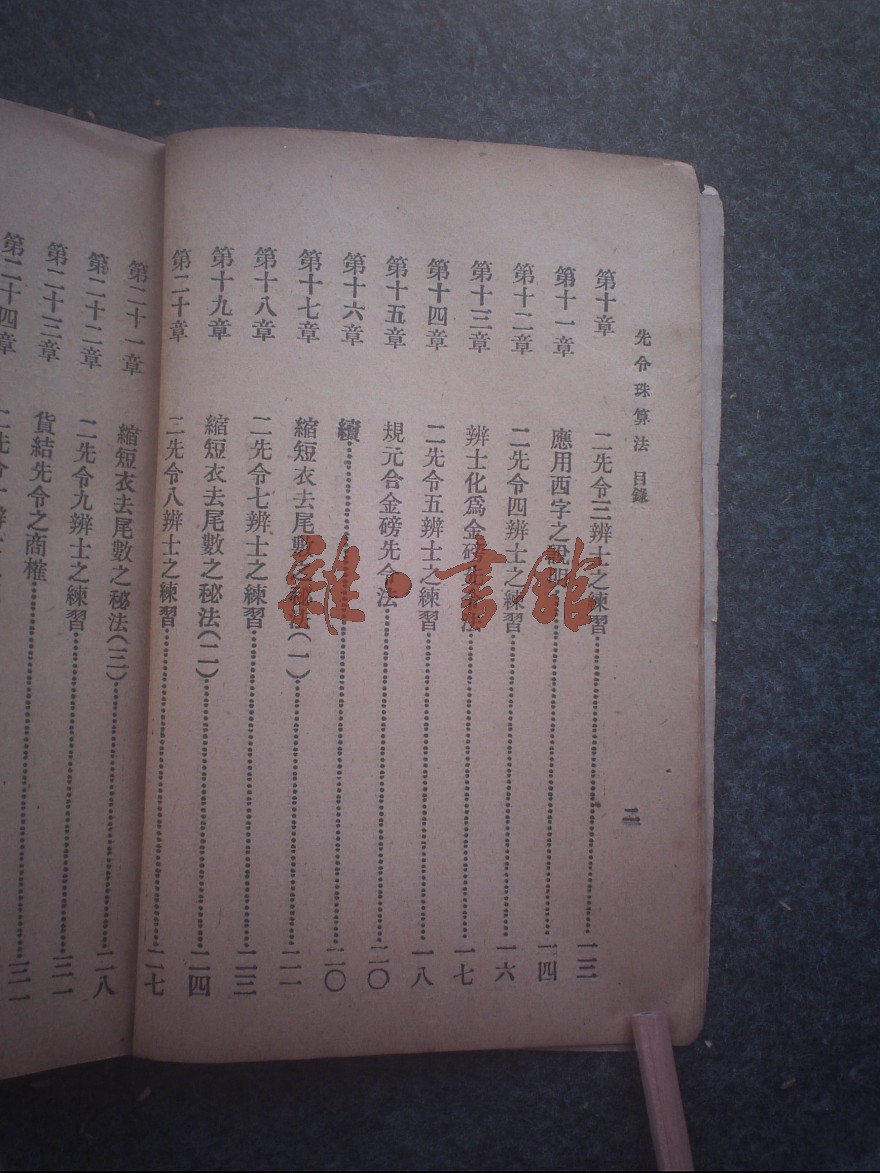 先令珠算法 目錄 二
第十章 二先令三辨士之練習……一三
第十一章 應用西字之說明……一四
第十二章 二先令四辨士之練習……一六
第十三章 辨士化爲金磅先令法……一七
第十四章 二先令五辨士之練習……一八
第十五章 規元合金磅先令法……二〇
第十六章 續……二〇
第十七章 縮短衣去尾數之秘法(一)……二一
第十八章 二先令七辨士之練習……二三
第十九章 縮短衣去尾數之秘法(二)……二四
第二十章 二先令八辨士之練習……二七
第二十一章 縮短衣去尾數之秘法(三)……二八
第二十二章 二先令九辨士之練習……三一
第二十三章 貨結先令之商榷……
第二十四章 二先令十辨士之
雜·書館